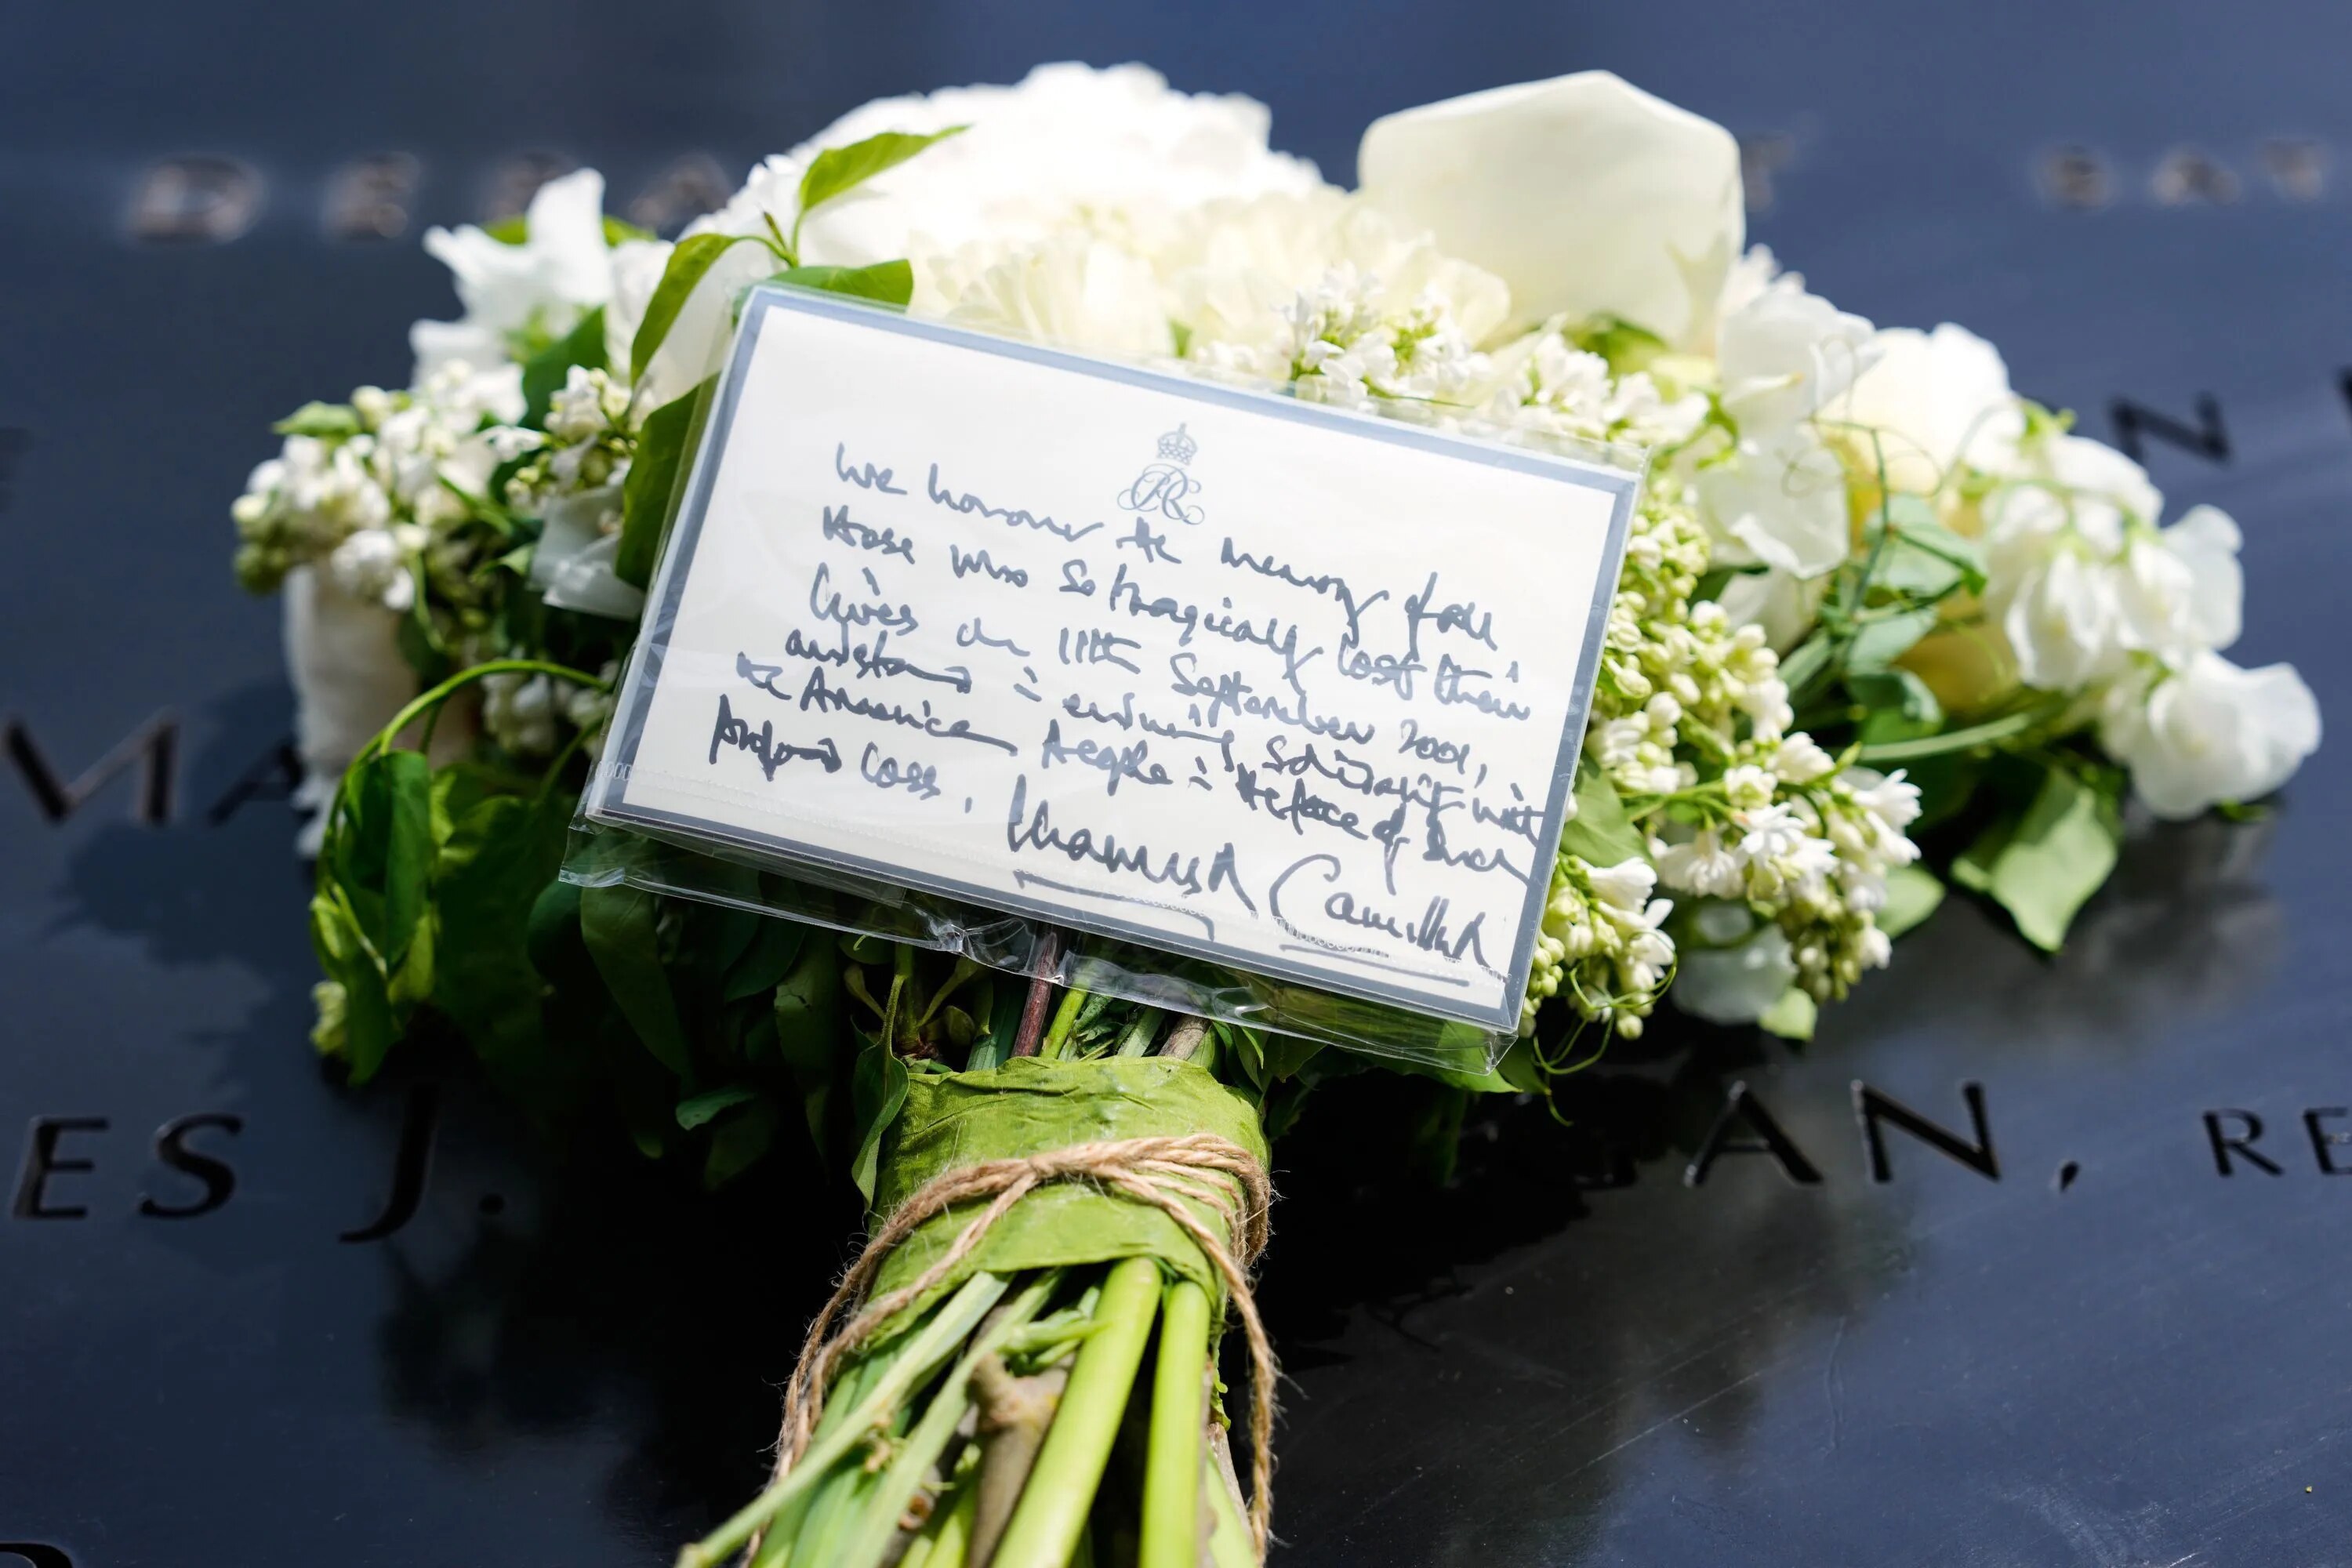 DE
N
MA
We honour the memory of all
those who so tragically lost their
lives on 11th September 2001,
and stand in enduring solidarity with
the American people in the face of such
profound loss.
Charles R Camilla R
ES J.
AN, RE